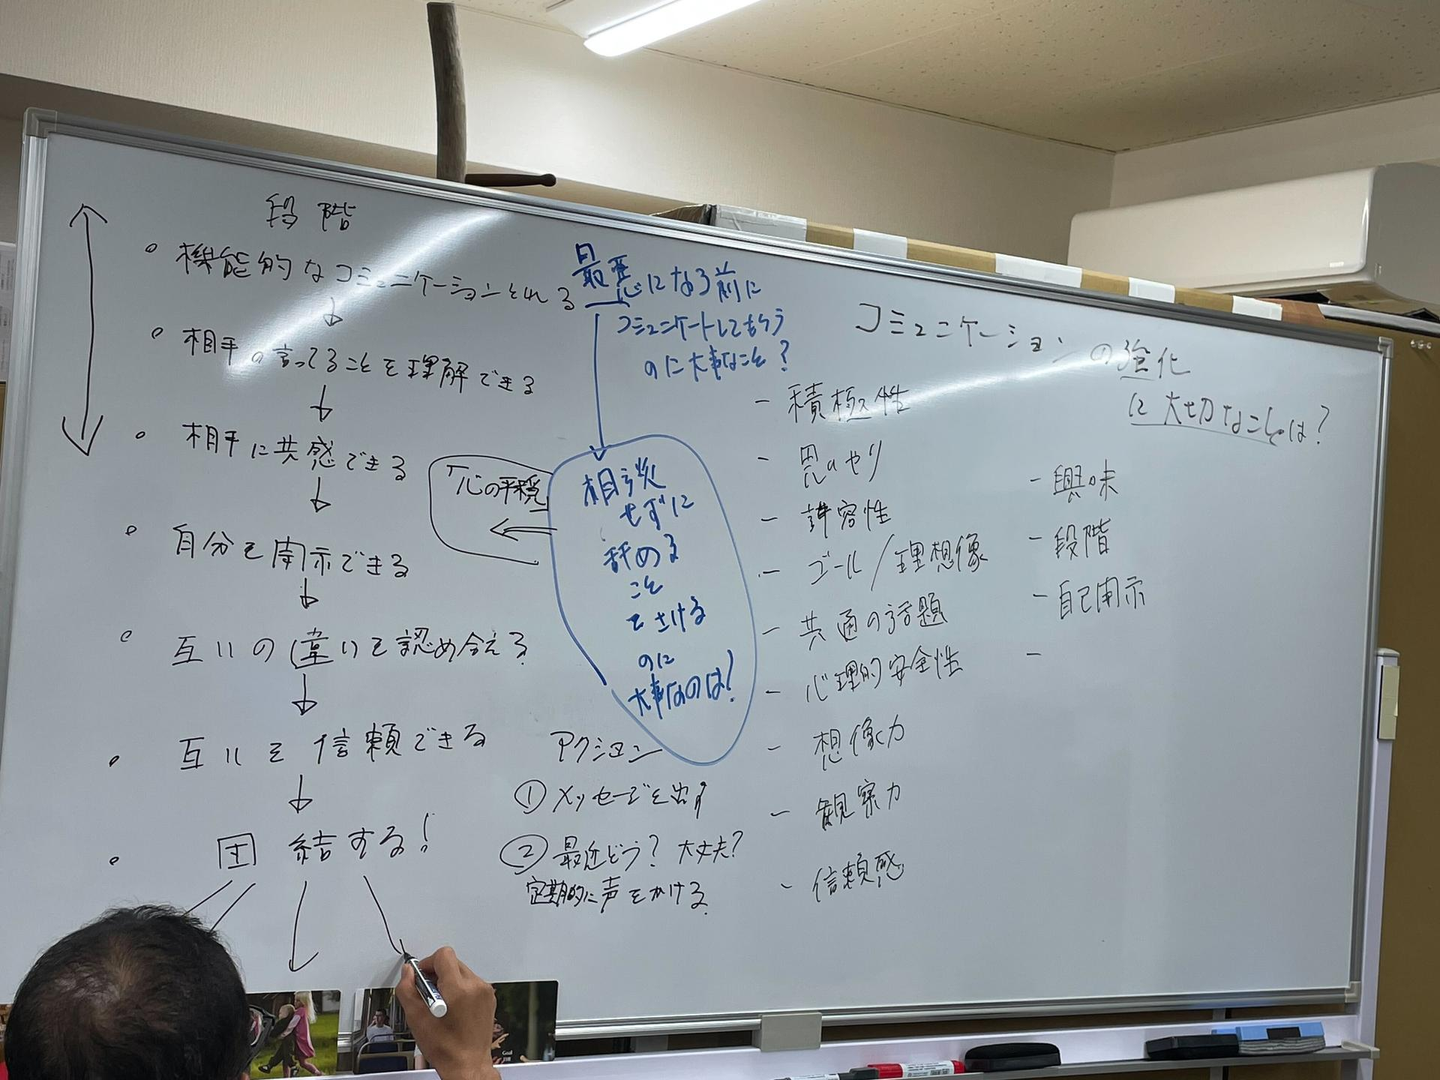 段階
・機能的なコミュニケーションとれる
↓
・相手の言ってることを理解できる
↓
・相手に共感できる
↓
・自分を開示できる
↓
・互いの違いを認め合える
↓
・互いを信頼できる
↓
・団結する!
最悪になる前に
コミュニケートしてもらう
のに大事なこと?
心の平穏
相談
せずに
辞める
こと
をさける
のに
大事なのは?
アクション
① メッセージを出す
② 最近どう?大丈夫?
定期的に声をかける
コミュニケーションの強化
に大切なことは?
- 積極性
- 思いやり
- 許容性
- ゴール/理想像
- 共通の話題
- 心理的安全性
- 想像力
- 観察力
- 信頼感
- 興味
- 段階
- 自己開示
-